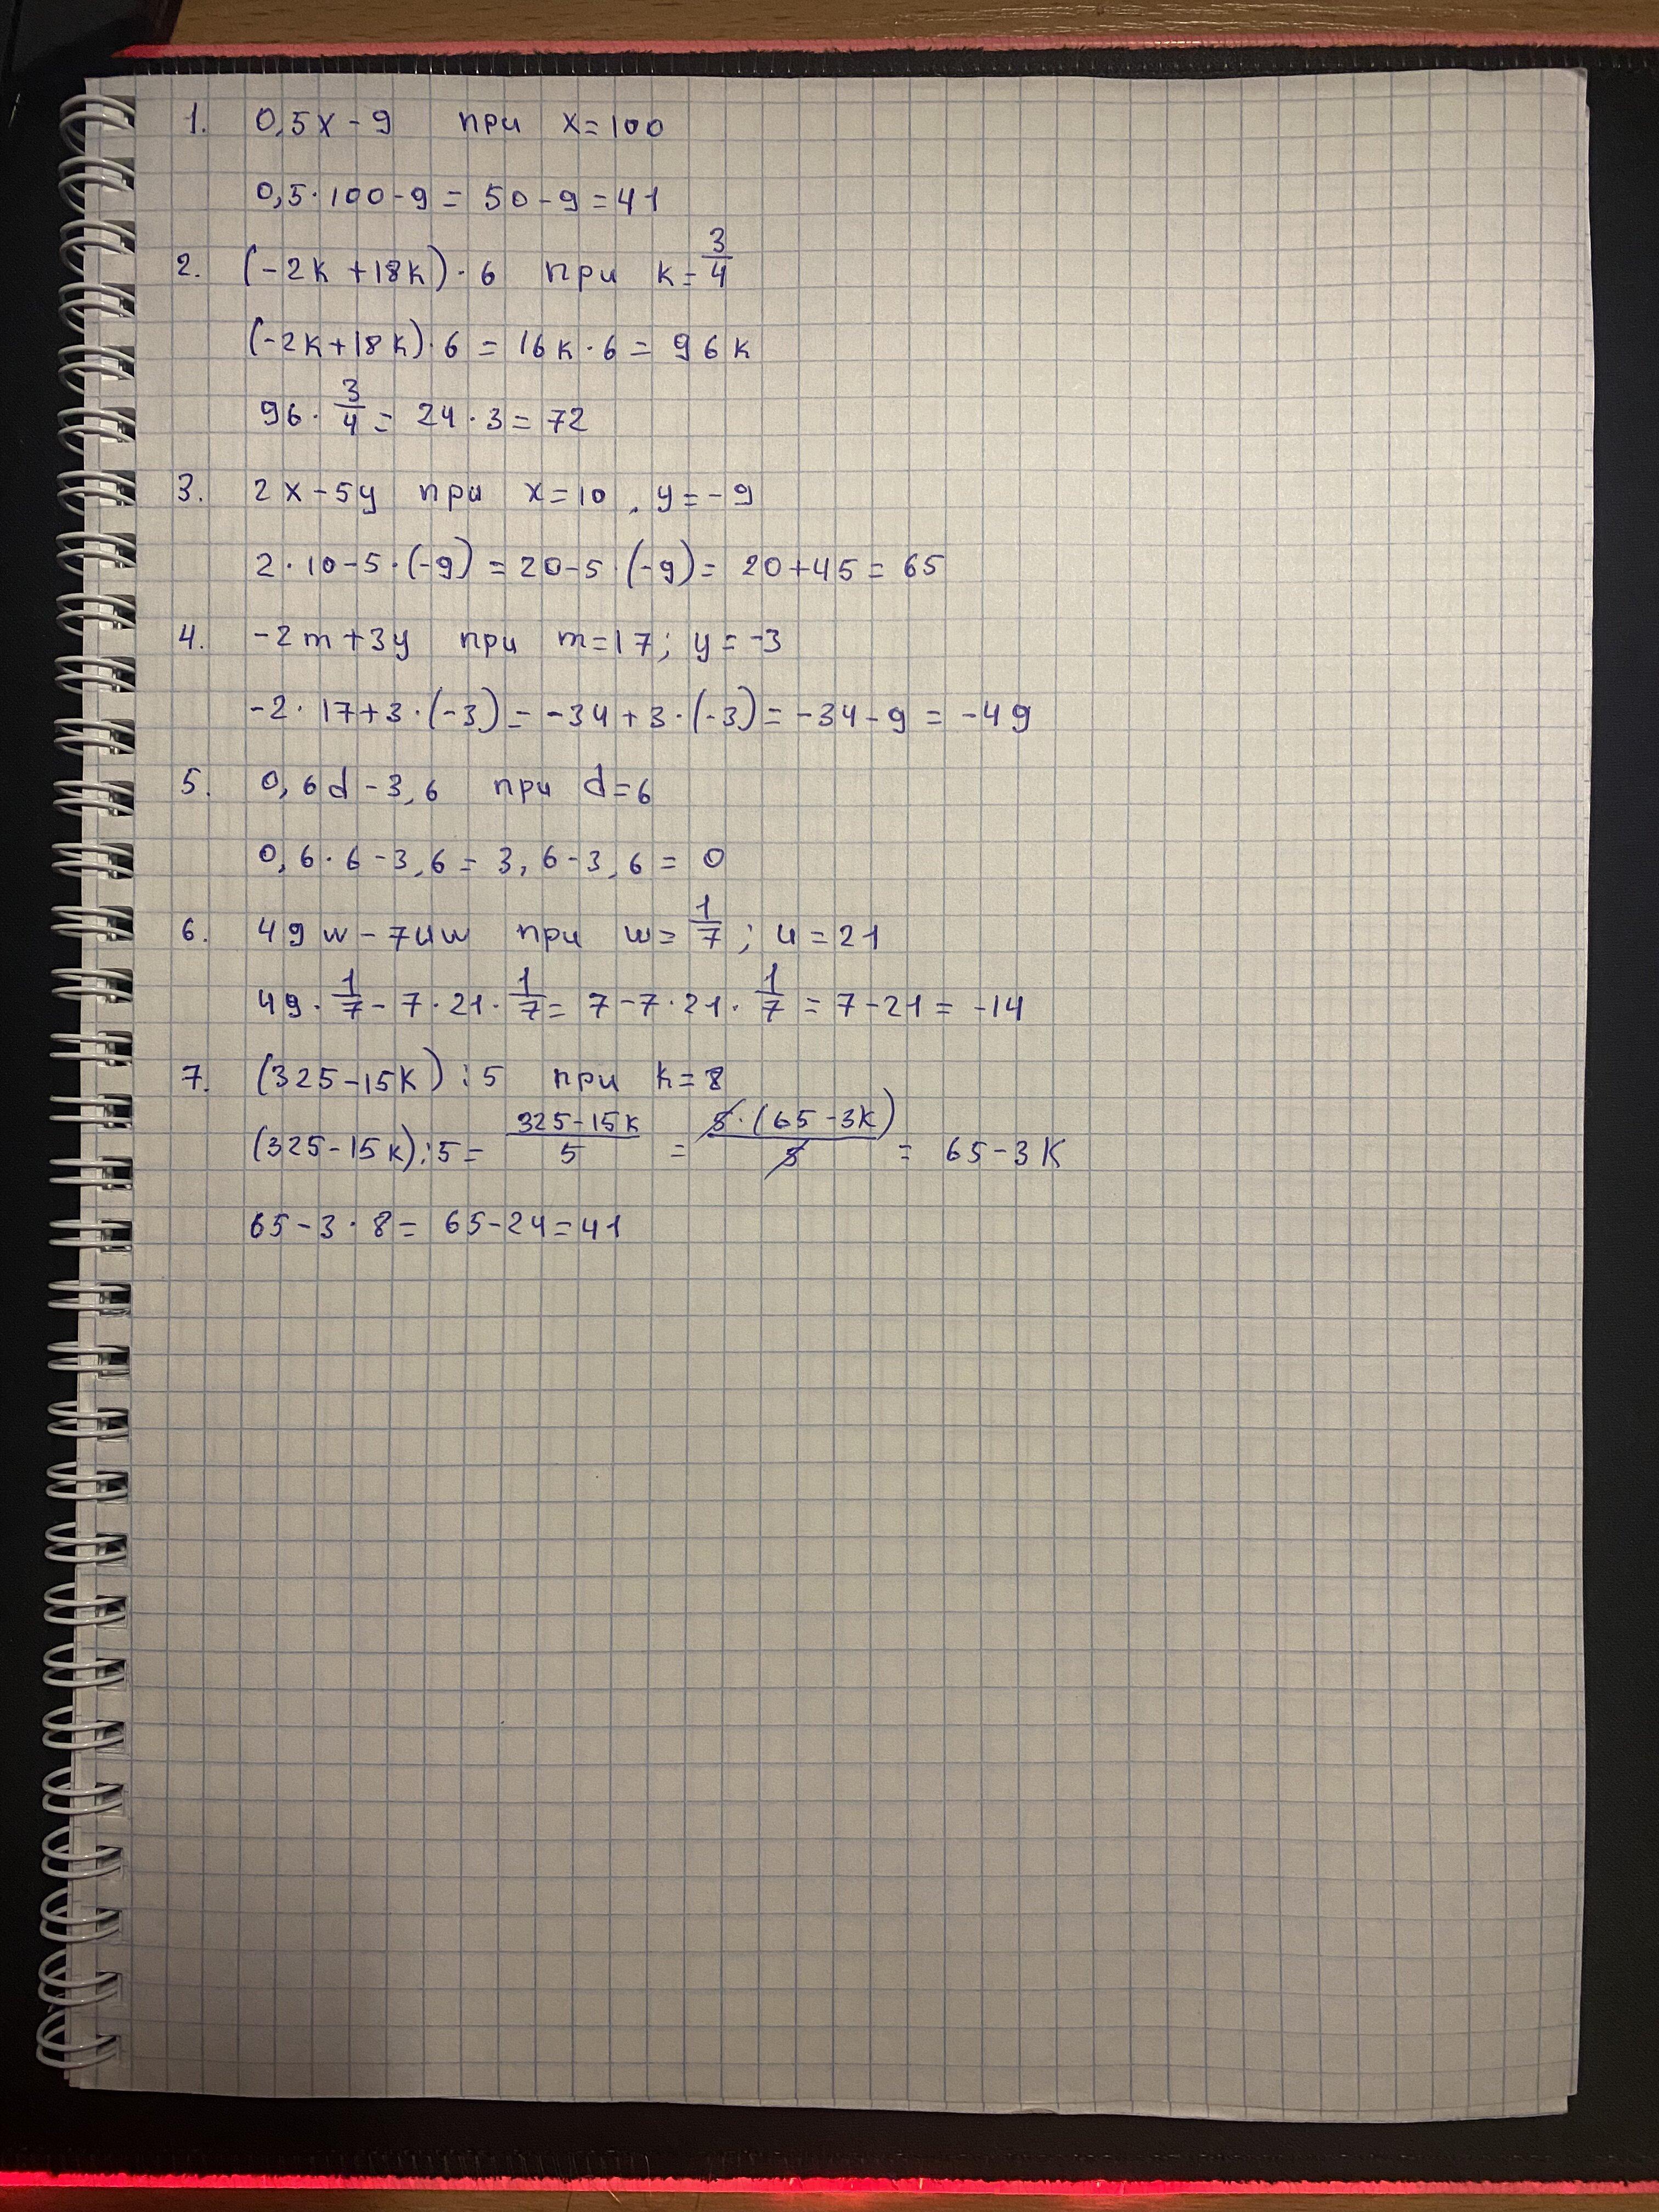 1. 0,5x - 9 при x = 100
0,5 · 100 - 9 = 50 - 9 = 41
2. (-2k + 18k) · 6 при k = 3/4
(-2k + 18k) · 6 = 16k · 6 = 96k
96 · 3/4 = 24 · 3 = 72
3. 2x - 5y при x = 10, y = -9
2 · 10 - 5 · (-9) = 20 - 5 · (-9) = 20 + 45 = 65
4. -2m + 3y при m = 17; y = -3
-2 · 17 + 3 · (-3) = -34 + 3 · (-3) = -34 - 9 = -49
5. 0,6d - 3,6 при d = 6
0,6 · 6 - 3,6 = 3,6 - 3,6 = 0
6. 49w - 7uw при w = 1/7; u = 21
49 · 1/7 - 7 · 21 · 1/7 = 7 - 7 · 21 · 1/7 = 7 - 21 = -14
7. (325 - 15k) : 5 при k = 8
(325 - 15k) : 5 = (325 - 15k)/5 = 5 · (65 - 3k)/5 = 65 - 3k
65 - 3 · 8 = 65 - 24 = 41